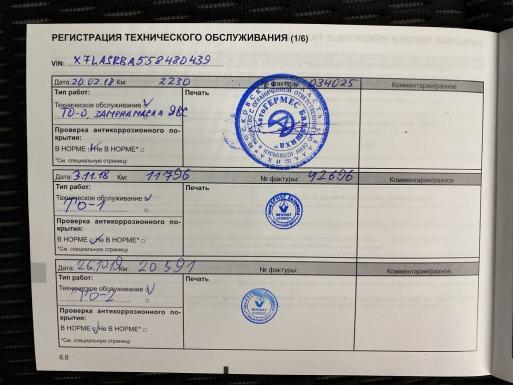 РЕГИСТРАЦИЯ ТЕХНИЧЕСКОГО ОБСЛУЖИВАНИЯ (1/6)
VIN: X7LASRBA558480439
Дата: 20.02.18 Км: 2230 № фактуры: 034025 Комментарии/разное
Тип работ: Печать
Техническое обслуживание
ТО-0, ЗАМЕНА МАСЛА ДВС
Проверка антикоррозионного по-
крытия:
В НОРМЕ Не В НОРМЕ* □
*См. специальную страницу
Дата: 3.11.18 Км: 11796 № фактуры: 42696 Комментарии/разное
Тип работ: Печать
Техническое обслуживание
ТО-1
Проверка антикоррозионного по-
крытия:
В НОРМЕ Не В НОРМЕ* □
*См. специальную страницу
Дата: 26.10.19 Км: 20391 № фактуры: Комментарии/разное
Тип работ: Печать
Техническое обслуживание
ТО-2
Проверка антикоррозионного по-
крытия:
В НОРМЕ Не В НОРМЕ* □
*См. специальную страницу
6.8